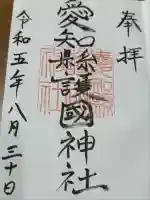 奉拝
愛知縣護國神社
令和五年八月三十日